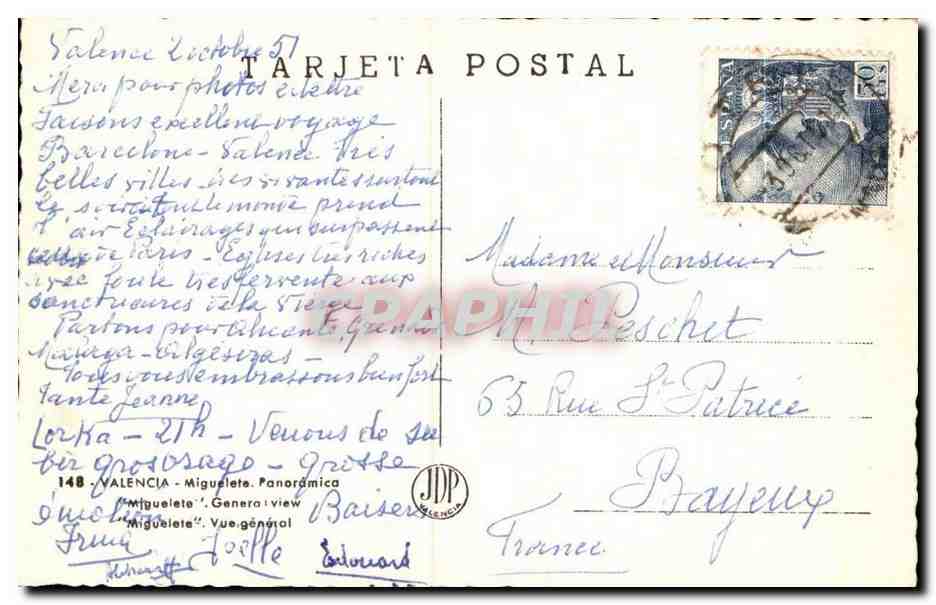 TARJETA POSTAL
Valence 2 octobre 51
Merci pour photos et lettre
Faisons excellent voyage
Barcelone - Valence très
belles villes très vivantes surtout
le soir où tout le monde prend
l'air Eclairages qui surpassent
ceux de Paris - Eglises très riches
avec foule très fervente aux
sanctuaires de la Vierge
Partons pour Alicante, Grenade
Malaga - Algésiras -
Tous vous embrassons bien fort
Tante Jeanne
Lorka - 21h - Venons de su
bir gros orage - Grosse
émotion Baisers
Joelle Edouard
148 - VALENCIA - Miguelete. Panorámica
"Miguelete". General view
"Miguelete". Vue général
JDP
VALENCIA
ESPAÑA
70
CTS
Madame et Monsieur
M. Peschet
65 Rue St Patrice
Bayeux
France
CPAPHIL